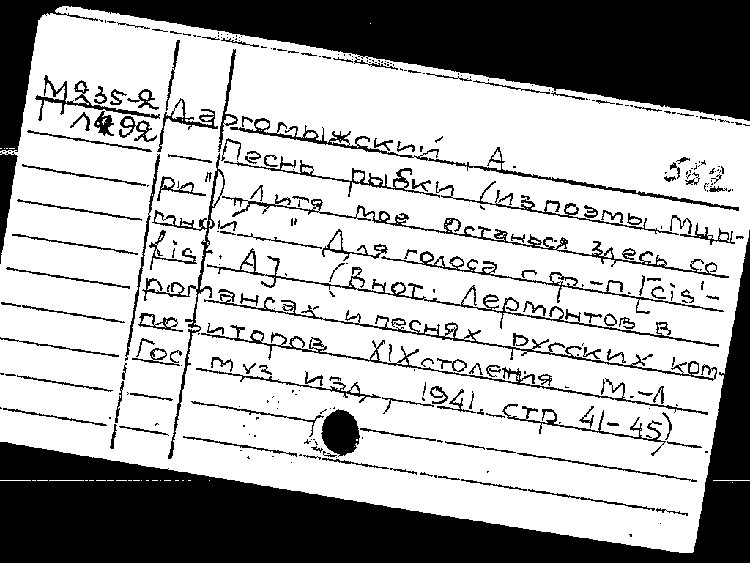 М235-2
Л492
Даргомыжский, А.
562
Песнь рыбки (из поэмы „Мцы-
ри") „Дитя мое останься здесь со
мной..." Для голоса с ф.-п. [cis¹-
fis²; A]. (В нот: Лермонтов в
романсах и песнях русских ком-
позиторов XIX столения. М.-Л.,
Гос. муз. изд., 1941. стр. 41-45)